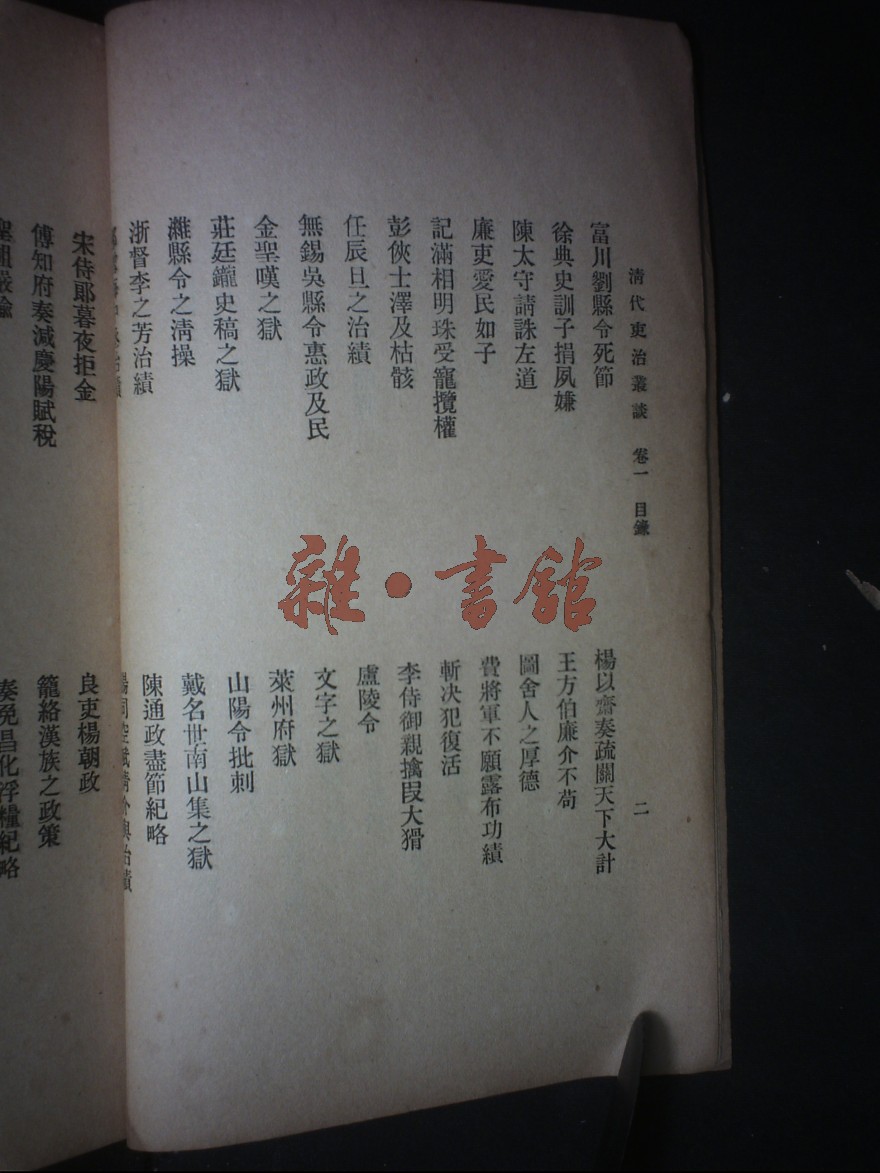 清代吏治叢談 卷一 目錄 二
富川劉縣令死節
徐典史訓子捐夙嫌
陳太守請誅左道
廉吏愛民如子
記滿相明珠受寵攬權
彭俠士澤及枯骸
任辰旦之治績
無錫吳縣令惠政及民
金聖嘆之獄
莊廷鑨史稿之獄
濰縣令之淸操
浙督李之芳治績
楊以齋奏疏關天下大計
王方伯廉介不苟
圖舍人之厚德
費將軍不願露布功績
斬决犯復活
李侍御親擒段大猾
盧陵令
文字之獄
萊州府獄
山陽令批刺
戴名世南山集之獄
陳通政盡節紀略
宋侍郞暮夜拒金
傅知府奏減慶陽賦稅
聖祖嚴諭
良吏楊朝政
籠絡漢族之政策
奏免昌化浮糧紀略
雜·書館